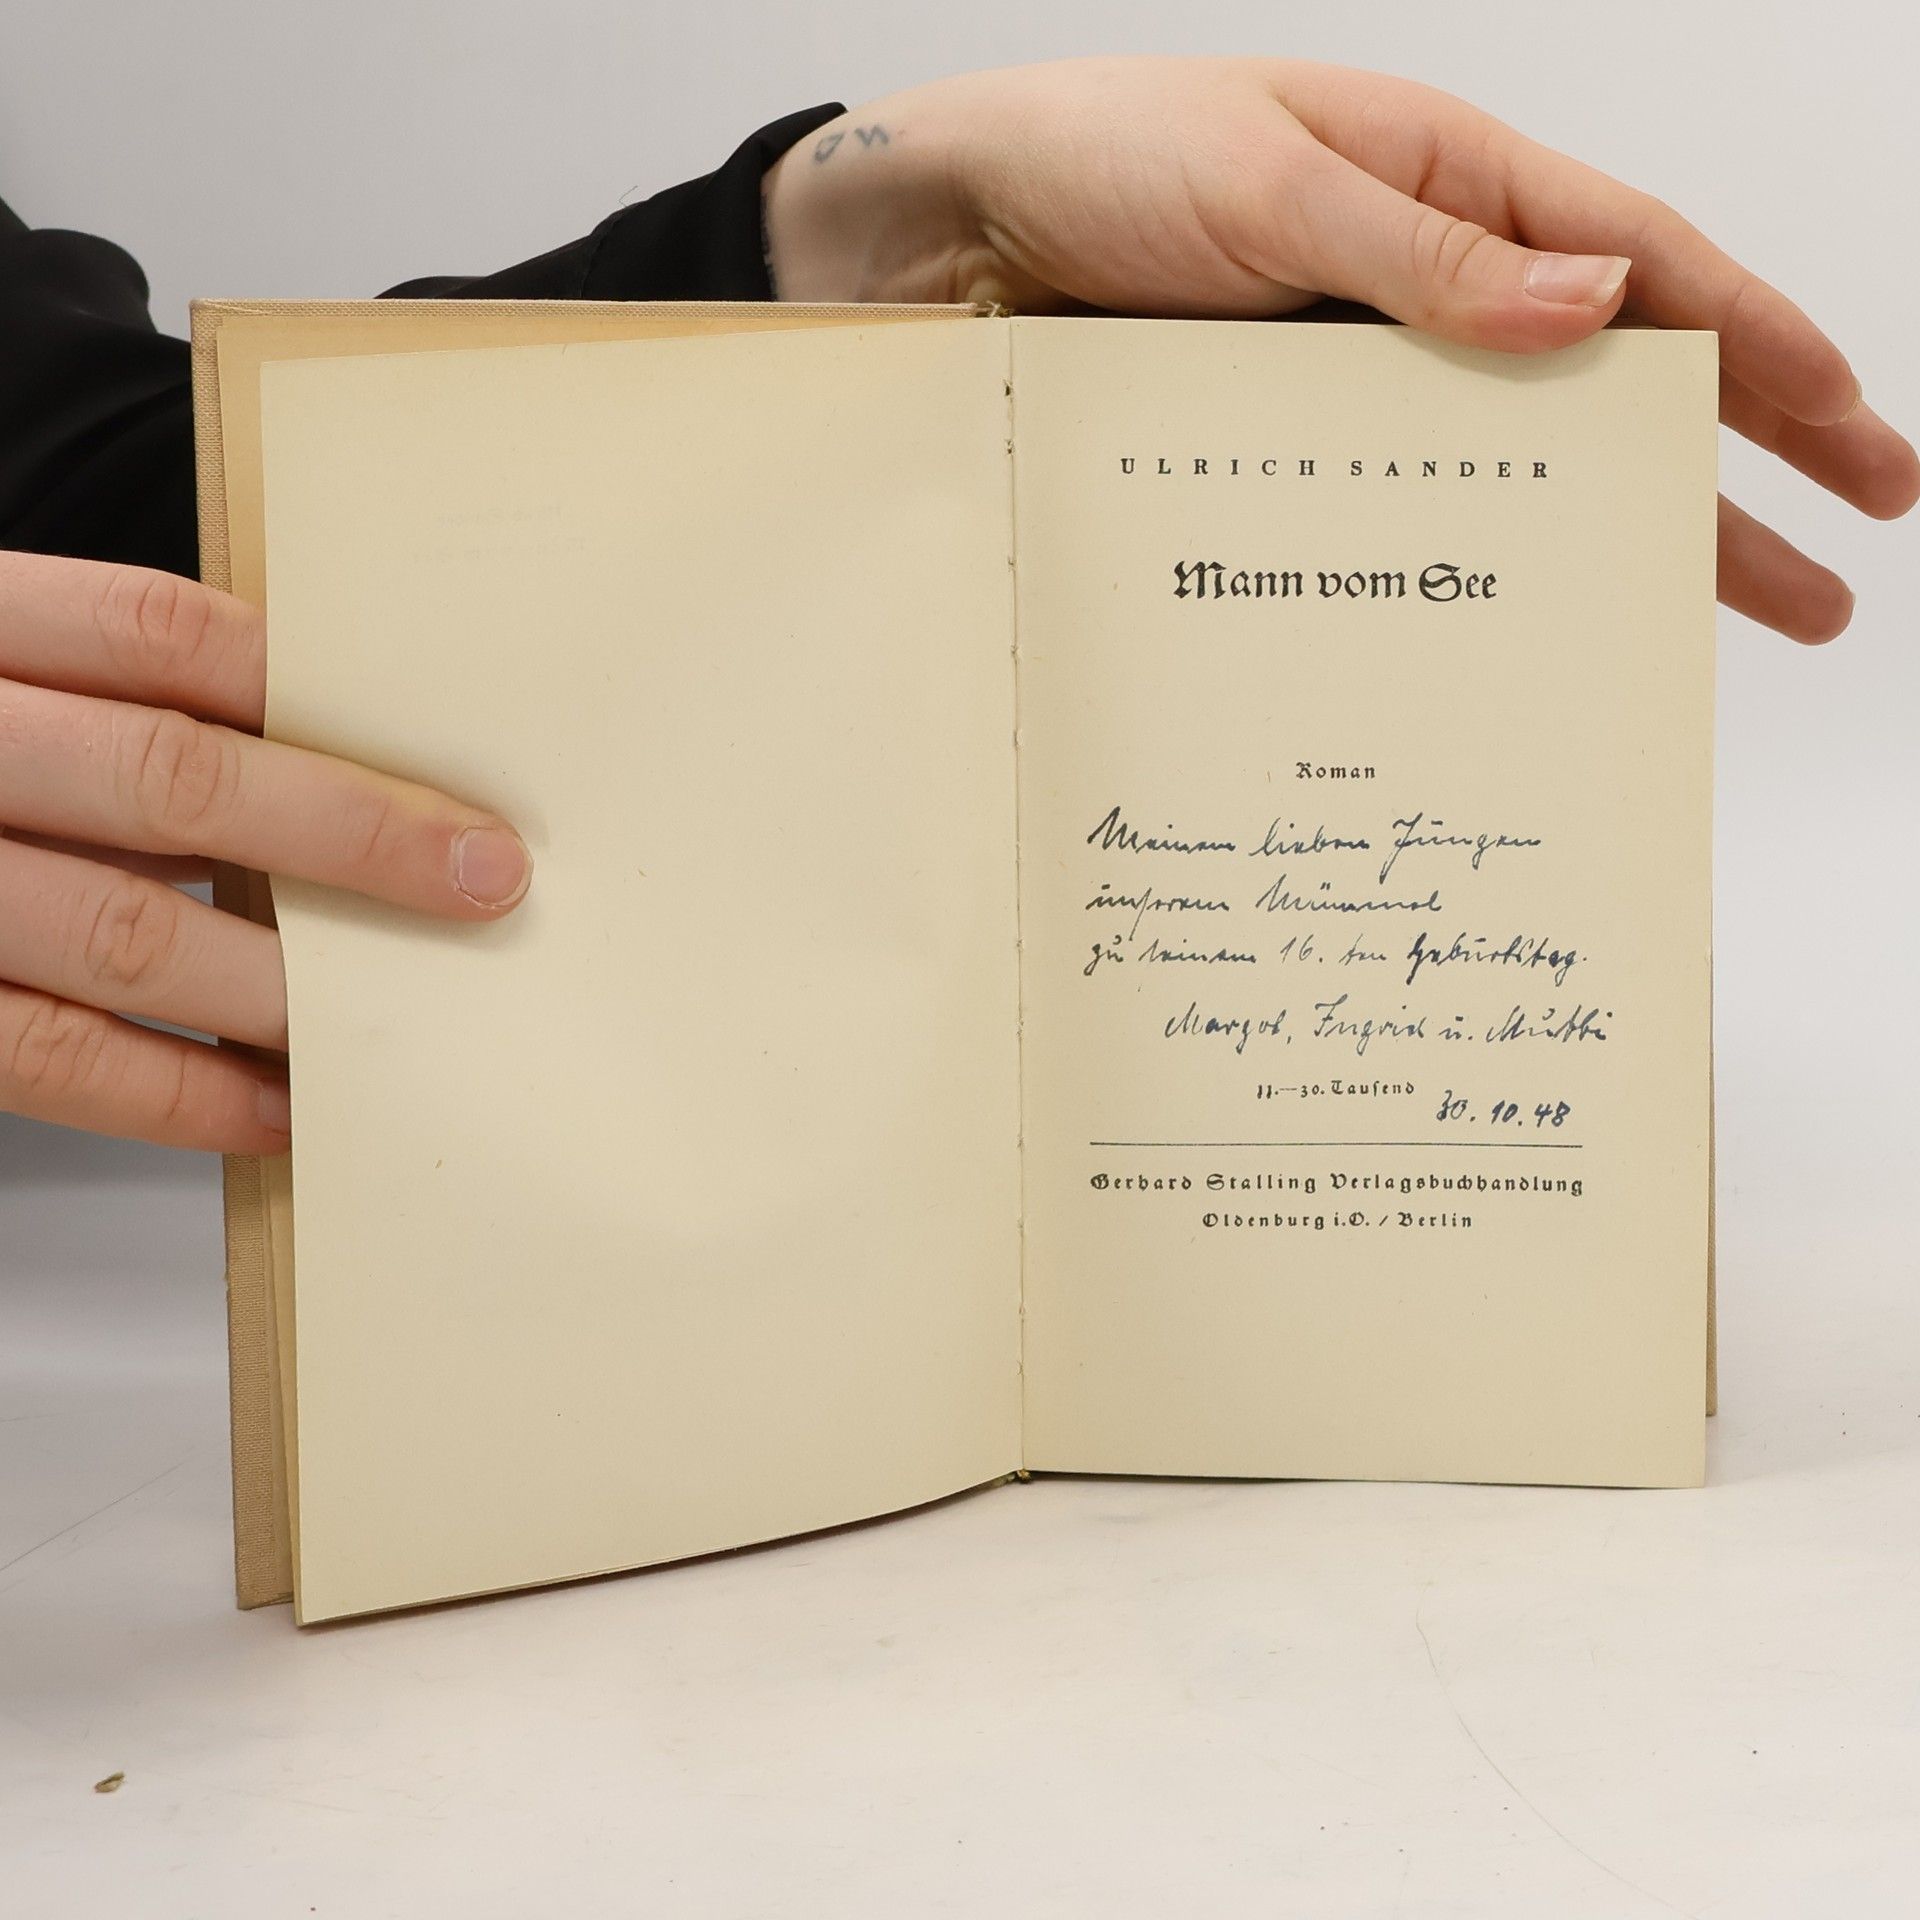 ULRICH SANDER
Mann vom See
Roman
Meinem lieben Jungen
unserem Mümmel
zu seinem 16. ten Geburtstag.
Margot, Ingrid u. Mutti
11.—30. Tausend
30. 10. 48
Gerhard Stalling Verlagsbuchhandlung
Oldenburg i.O. / Berlin